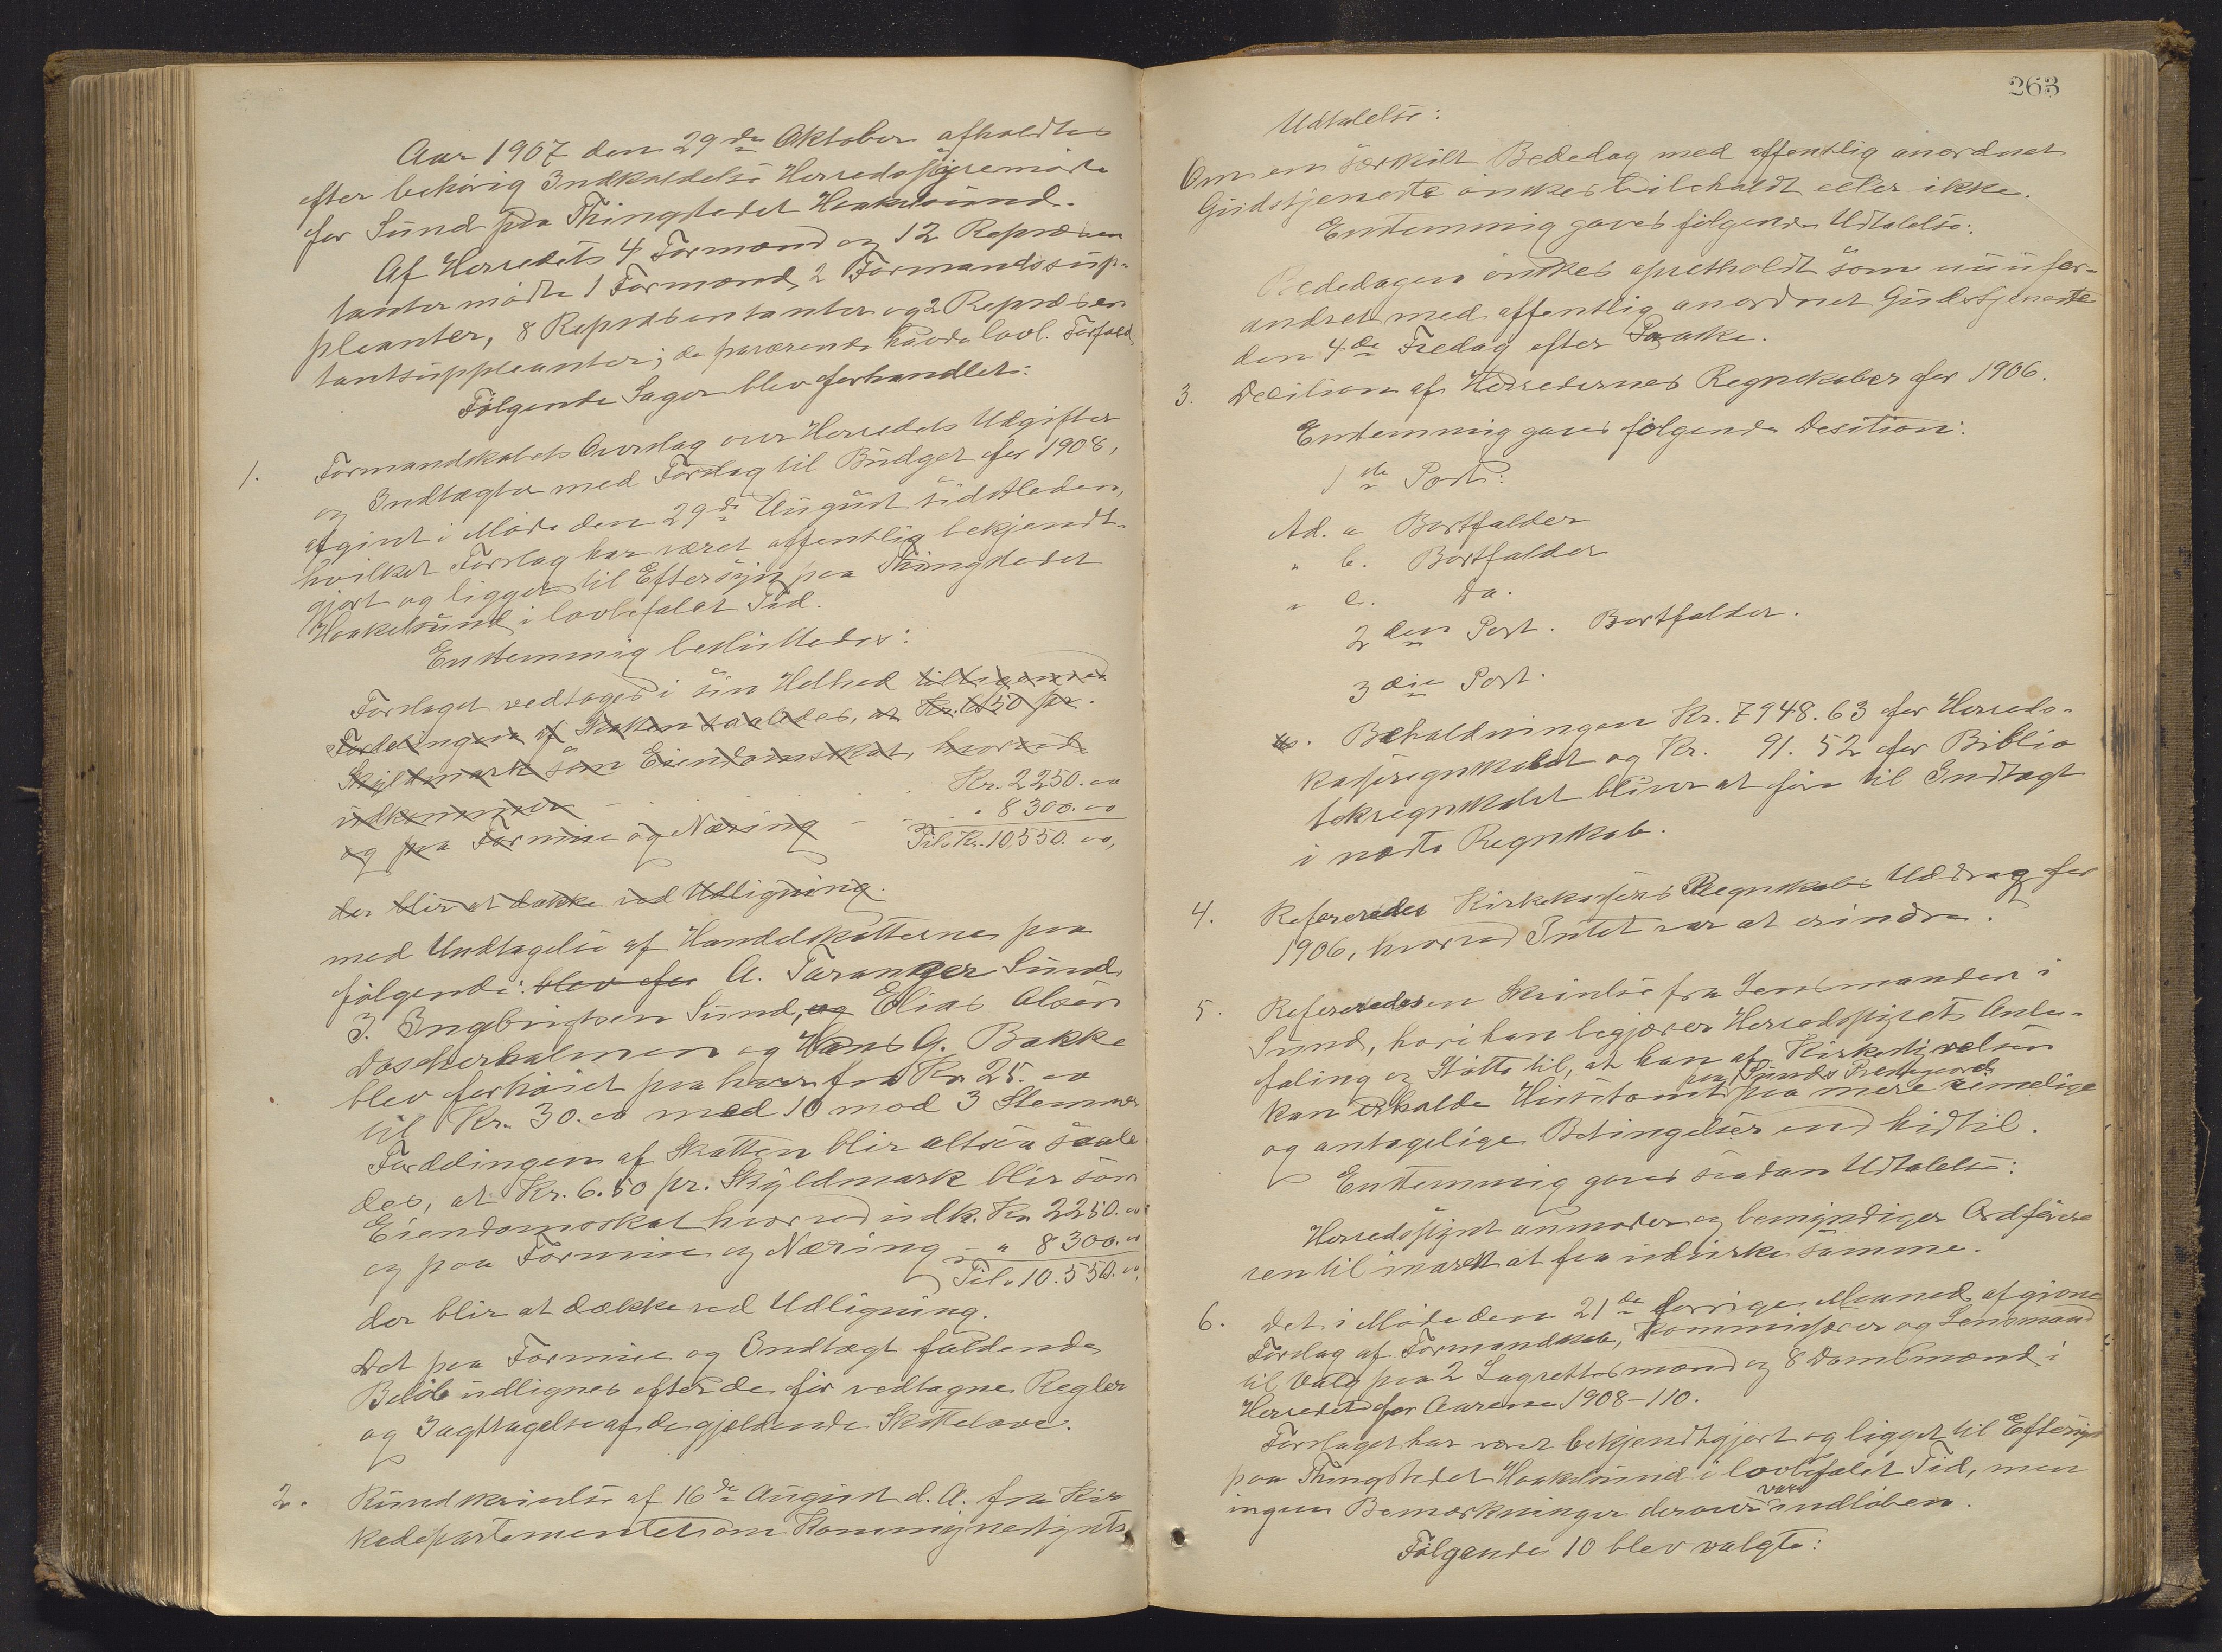 Aar 1907 den 29de Oktober afholdtes
efter behörig Indkaldelse Herredsstyremöte
for Sund paa Thingstedet Haakelsund.
Af Herredets 4 Formænd og 12 Repræsen
tanter mödte 1 Formand, 2 Formandssup-
pleanter, 8 Repræsentanter og 2 Repræsen
tantsuppleanter; de fraværende havde lovl. Forfald
Fölgende Sager blev forhandlet:
1. Formandskabets Overslag over Herredets Udgifter
og Indtægter med Forslag til Budget for 1908,
afgivet i Möde den 29de August sidstleden,
hvilket Forslag har været offentlig bekjendt-
gjort og ligget til Eftersyn paa Thingstedet
Haakelsund i lovbefalet Tid.
Enstemmig besluttedes:
Forslaget vedtages i sin Helhed tilligemed
Fordelingen af Skatten saaledes, at Kr. 6.50 pr.
Skyldmark som Eiendomsskat, hvorved
udkommer Kr. 2250.00
og paa Formue og Næring " 8300.00
Til. Kr. 10,550.00,
der blir at dække ved Udligning.
med Undtagelse af Handelsskatterne paa
fölgende: blev for A. Taranger Sund,
I. Ingebrigtsen Sund, og Elias Olsen
Doskerholmen og Hans G. Bakke
blev forhöiet paa hver fra Kr. 25.00
til Kr. 30.00 med 10 mod 3 Stemmer
Fordelingen af Skatten blir altsaa saale
des, at Kr. 6.50 pr. Skyldmark blir som
Eiendomsskat hvorved udk. Kr. 2250.00
og paa Formue og Næring - " 8300.00
Til. 10.550.00,
der blir at dække ved Udligning.
Det paa Formue og Indtægt faldende
Belöb udlignes efter de för vedtagne Regler
og Iagttagelse af de gjældende Skattelove.
2. Rundskrivelse af 16de August d. A. fra Kir
kedepartementet om Kommunestyrets
263
Udtalelse:
Om en særskilt Bededag med offentlig anordnet
Gudstjeneste önskes bibeholdt eller ikke.
Enstemmig gaves fölgende Udtalelse:
Bededagen önskes opretholdt som uufor-
andret med offentlig anordnet Gudstjeneste
den 4de Fredag efter Paaske.
3. Decision af Herredernes Regnskaber for 1906.
Enstemmig gaves fölgende Desition:
1ste Post:
Ad. a Bortfalder
" b. Bortfalder
" c. Do.
2den Post. Bortfalder.
3die Post.
Beholdningen Kr. 7948.63 for Herreds-
kasseregnskabet og Kr. 91.52 for Biblio
tekregnskabet bliver at före til Indtægt
i næste Regnskab.
4. Refereredes Kirkekassens Regnskabs Uddrag for
1906, hvorved Intet var at erindre.
5. Refereredes en Skrivelse fra Lensmanden i
Sund, hvori han begjærer Herredsstyrets Anbe-
faling og Stötte til, at han af Kirkestyrelsen
paa Sunds Prestegaard
kan erholde Huustomt paa mere rimelige
og antagelige Betingelser end hidtil.
Enstemmig gaves saadan Udtalelse:
Herredsstyret anmoder og bemyndiger Ordföre
ren til snarest at faa udvirke samme.
6. Det i Möde den 21de forrige Maaned afgivne
Forslag af Formandskab, Kommisærer og Lensmand
til Valg paa 2 Lagrettesmænd og 8 Domsmænd i
Herredet for Aarene 1908-110.
Forslaget har været bekjendtgjort og ligget til Eftersyn
paa Thingstedet Haakelsund i lovbefalet Tid, men
ingen Bemærkninger derover vare indlöben.
Fölgende 10 blev valgte: